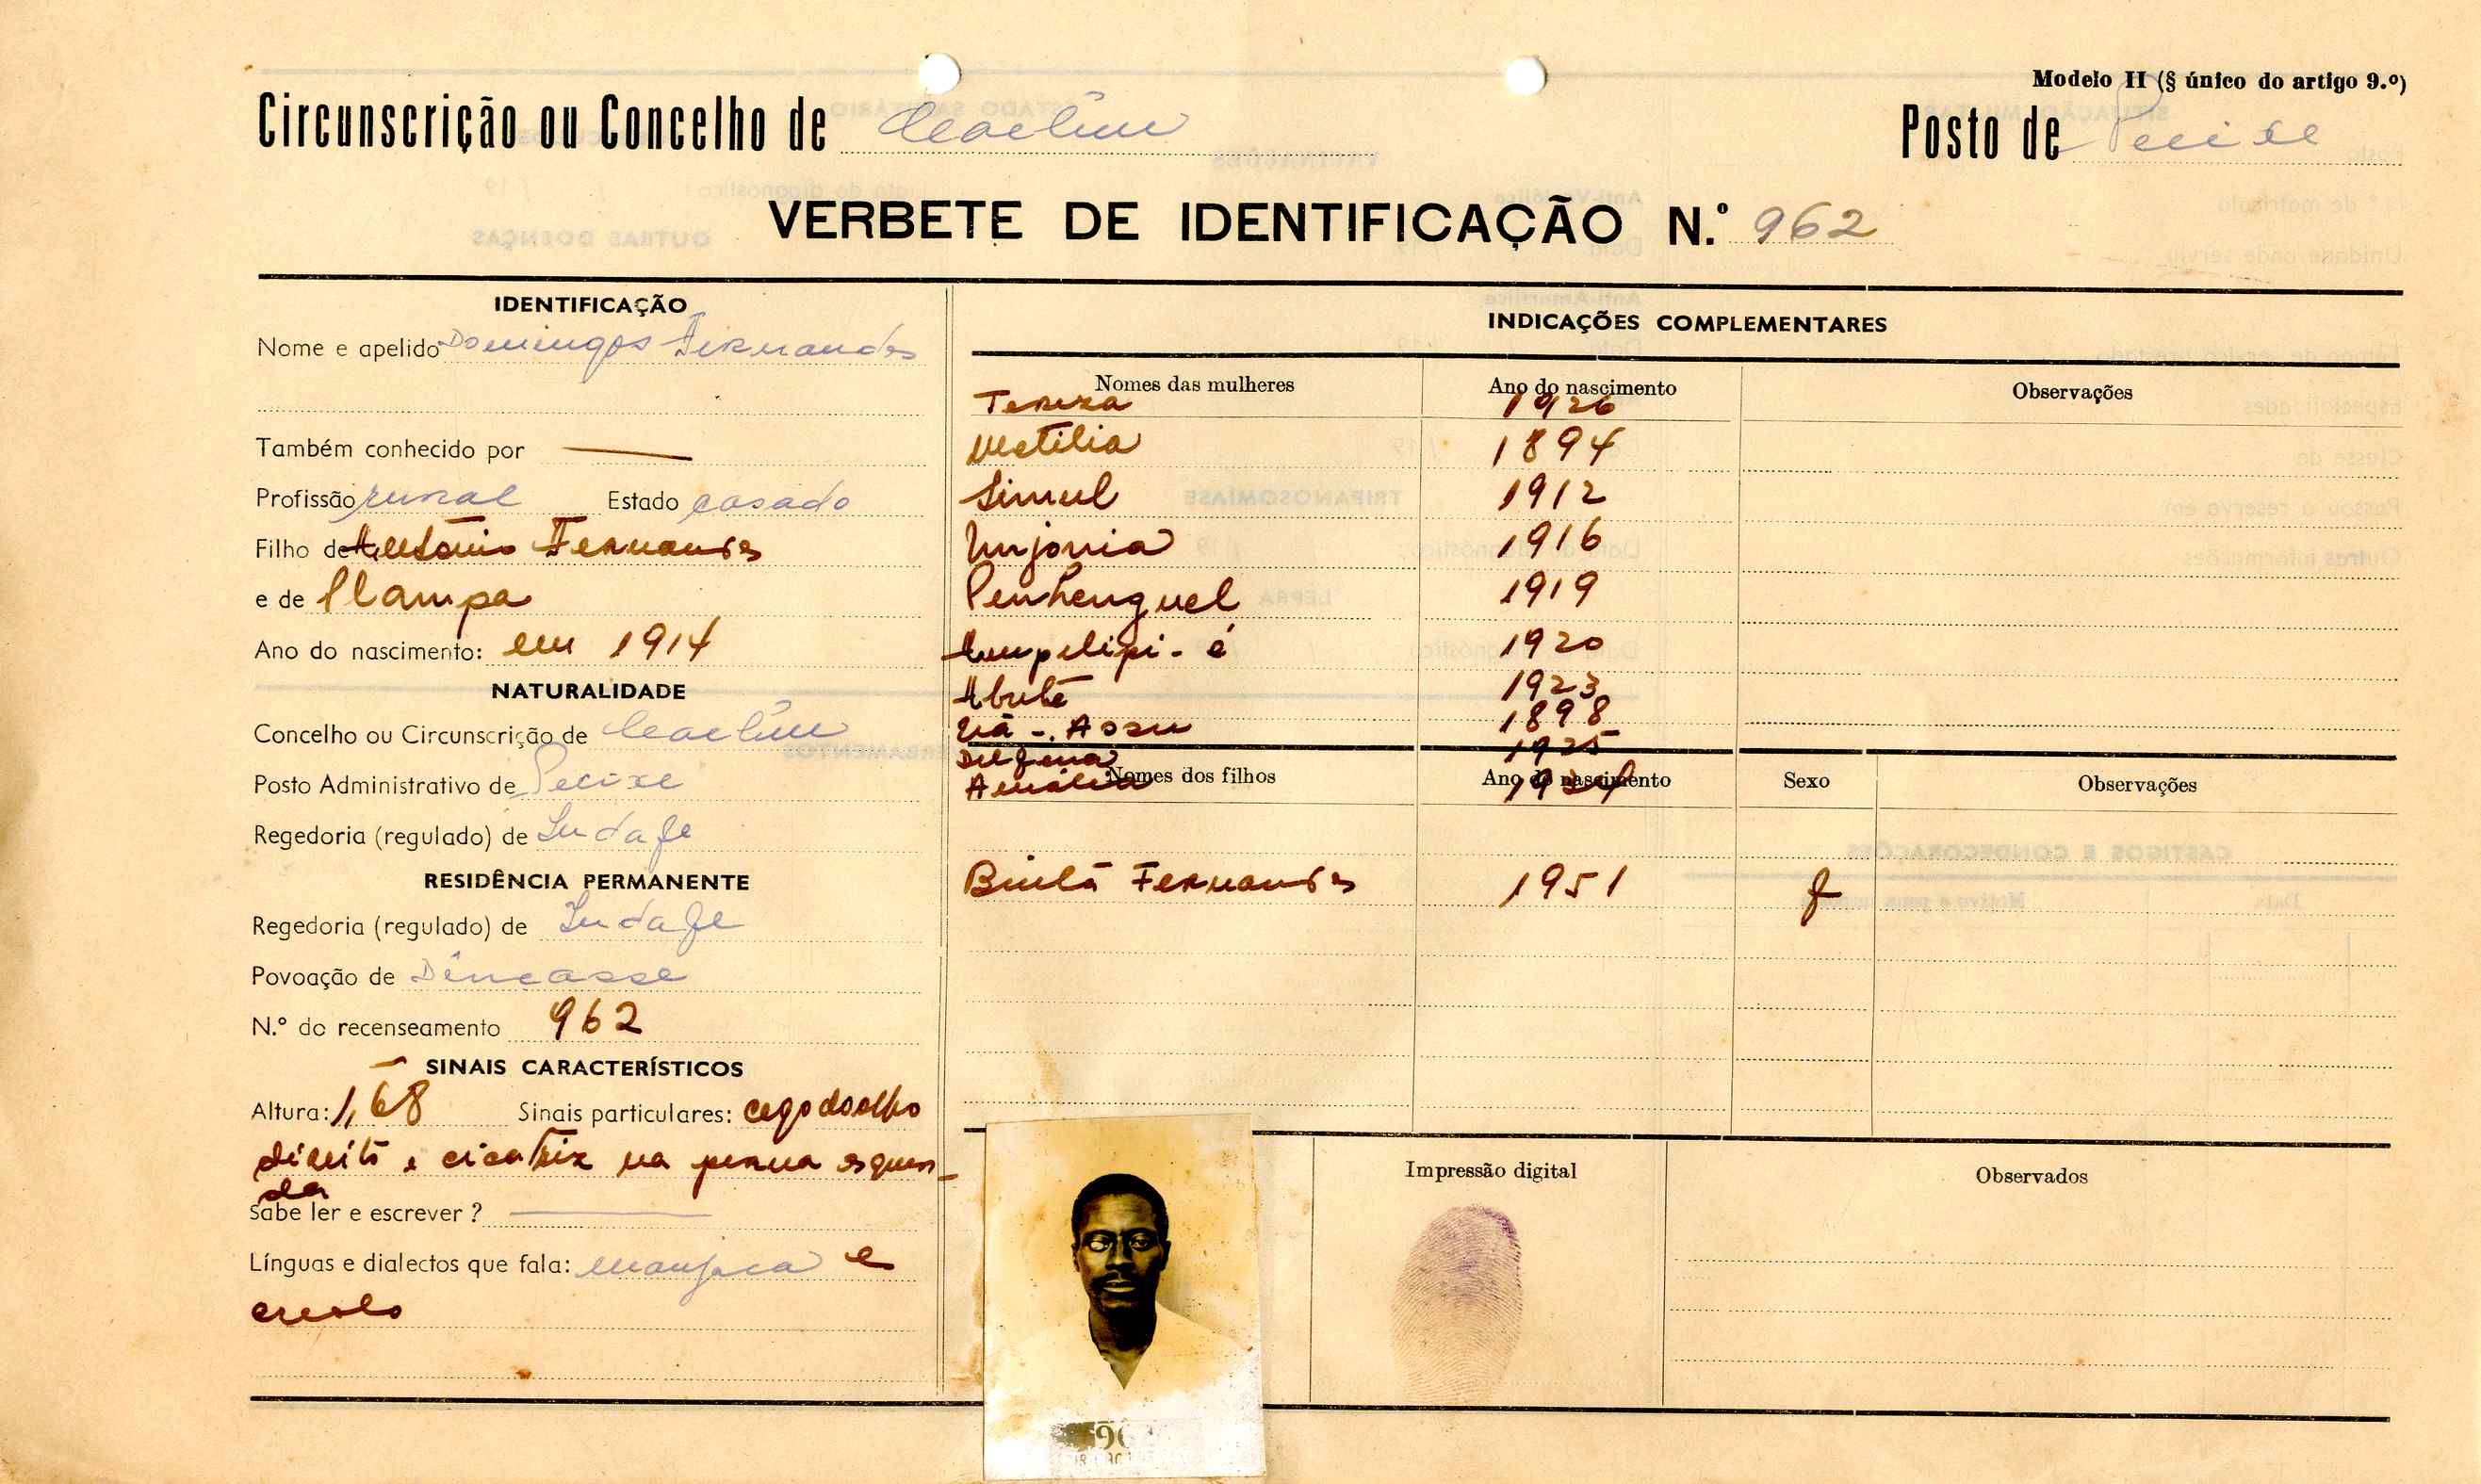 Modelo II (§ único do artigo 9.º)
Circunscrição ou Concelho de Cacheu Posto de Pecixe
VERBETE DE IDENTIFICAÇÃO N.º 962
IDENTIFICAÇÃO
Nome e apelido Domingos Fernandes
Também conhecido por —
Profissão rural Estado casado
Filho de António Fernandes
e de
Ano do nascimento: em 1914
NATURALIDADE
Concelho ou Circunscrição de Cacheu
Posto Administrativo de Pecixe
Regedoria (regulado) de Indafe
RESIDÊNCIA PERMANENTE
Regedoria (regulado) de Indafe
Povoação de Dincasse
N.º do recenseamento 962
SINAIS CARACTERÍSTICOS
Altura: 1,68 Sinais particulares: cego do olho
direito e cicatriz na perna esquer-
da
Sabe ler e escrever? —
Línguas e dialectos que fala: manjaca e
creolo
INDICAÇÕES COMPLEMENTARES
Nomes das mulheres Ano do nascimento Observações
Tereza 1926
1894
Simul 1912
1916
Penhenguel 1919
1920
1923
1898
1925
Amália
Nomes dos filhos Ano do nascimento Sexo Observações
Fernandes 1951 f
Impressão digital Observados